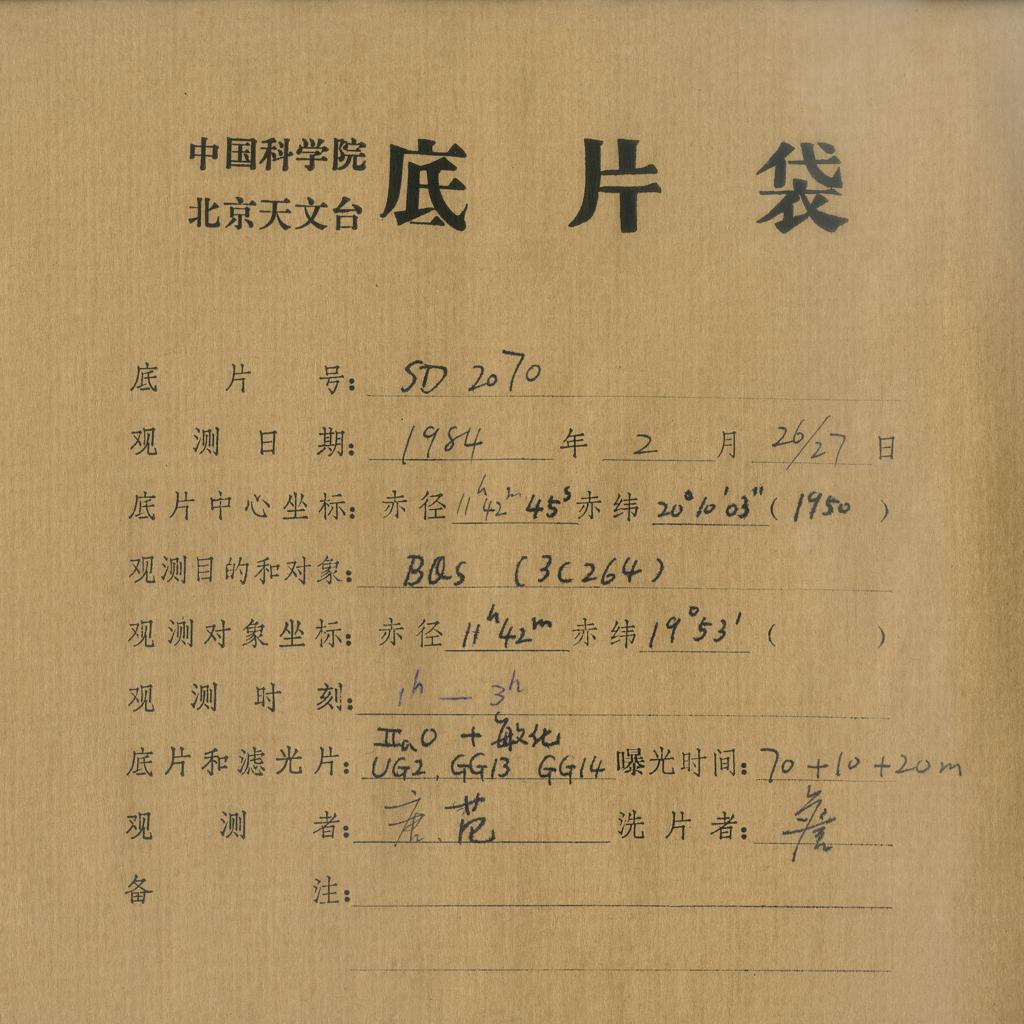 中国科学院
北京天文台 底片袋
底片号: SD 2070
观测日期: 1984 年 2 月 26/27 日
底片中心坐标: 赤径 11ʰ42ᵐ45ˢ 赤纬 20°10′03″ (1950)
观测目的和对象: BQS (3C264)
观测对象坐标: 赤径 11ʰ42ᵐ 赤纬 19°53′ ( )
观测时刻: 1ʰ — 3ʰ
IIaO + 敏化
底片和滤光片: UG2, GG13 GG14 曝光时间: 70+10+20m
观测者: 唐、范 洗片者: 詹
备注: